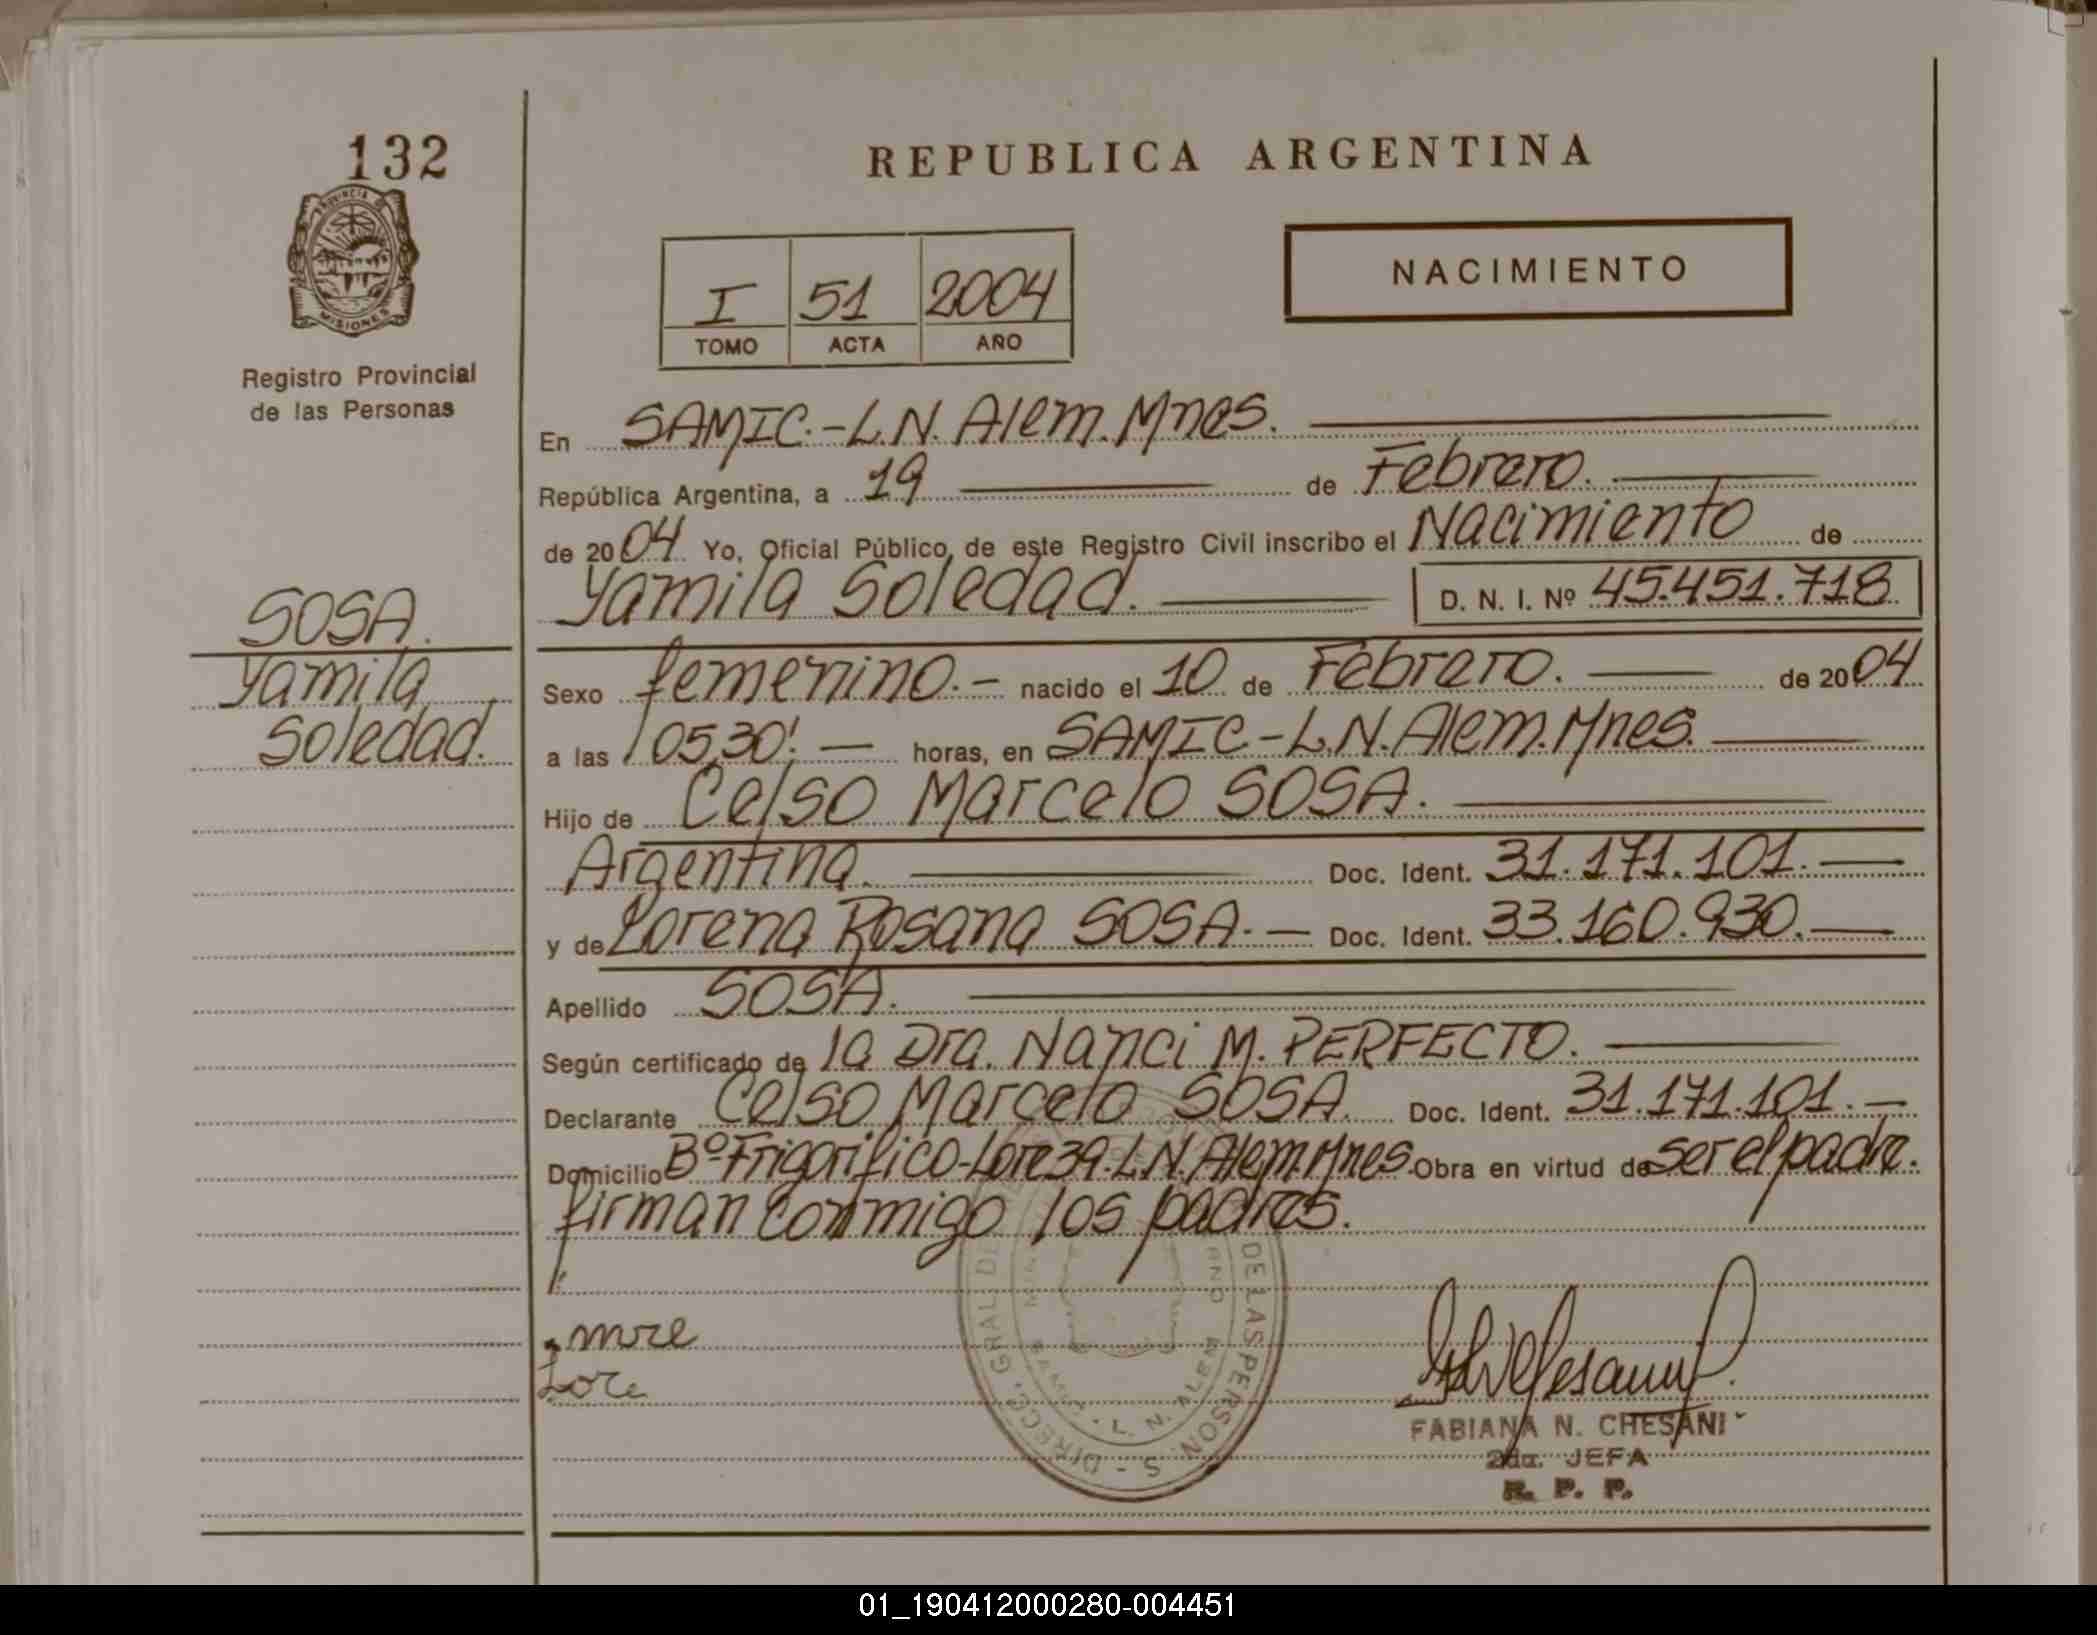 132
PROVINCIA DE
MISIONES
Registro Provincial
de las Personas
SOSA.
Yamila
Soledad.
REPUBLICA ARGENTINA
I 51 2004
TOMO ACTA AÑO
NACIMIENTO
En SAMIC.-L.N. Alem. Mnes.
República Argentina, a 19 de Febrero.
de 2004 Yo, Oficial Público, de este Registro Civil inscribo el Nacimiento de
Yamila Soledad. D. N. I. Nº 45.451.718
Sexo femenino.- nacido el 10 de Febrero. de 2004
a las 05,30'. — horas, en SAMIC-L.N. Alem. Mnes.
Hijo de Celso Marcelo SOSA.
Argentina. Doc. Ident. 31.171.101.
y de Lorena Rosana SOSA.- Doc. Ident. 33.160.930.
Apellido SOSA.
Según certificado de la Dra. Nanci M. PERFECTO.
Declarante Celso Marcelo SOSA. Doc. Ident. 31.171.101.-
Domicilio Bº Frigorífico-Lote 39-L.N. Alem. Mnes. Obra en virtud de ser el padre.
firman conmigo los padres.
Lore
DIRECC. GRAL. DE DE LAS PERSON.
SAMIC. - L. N. ALEM
FABIANA N. CHESANI
2da. JEFA
R. P. P.
01_190412000280-004451